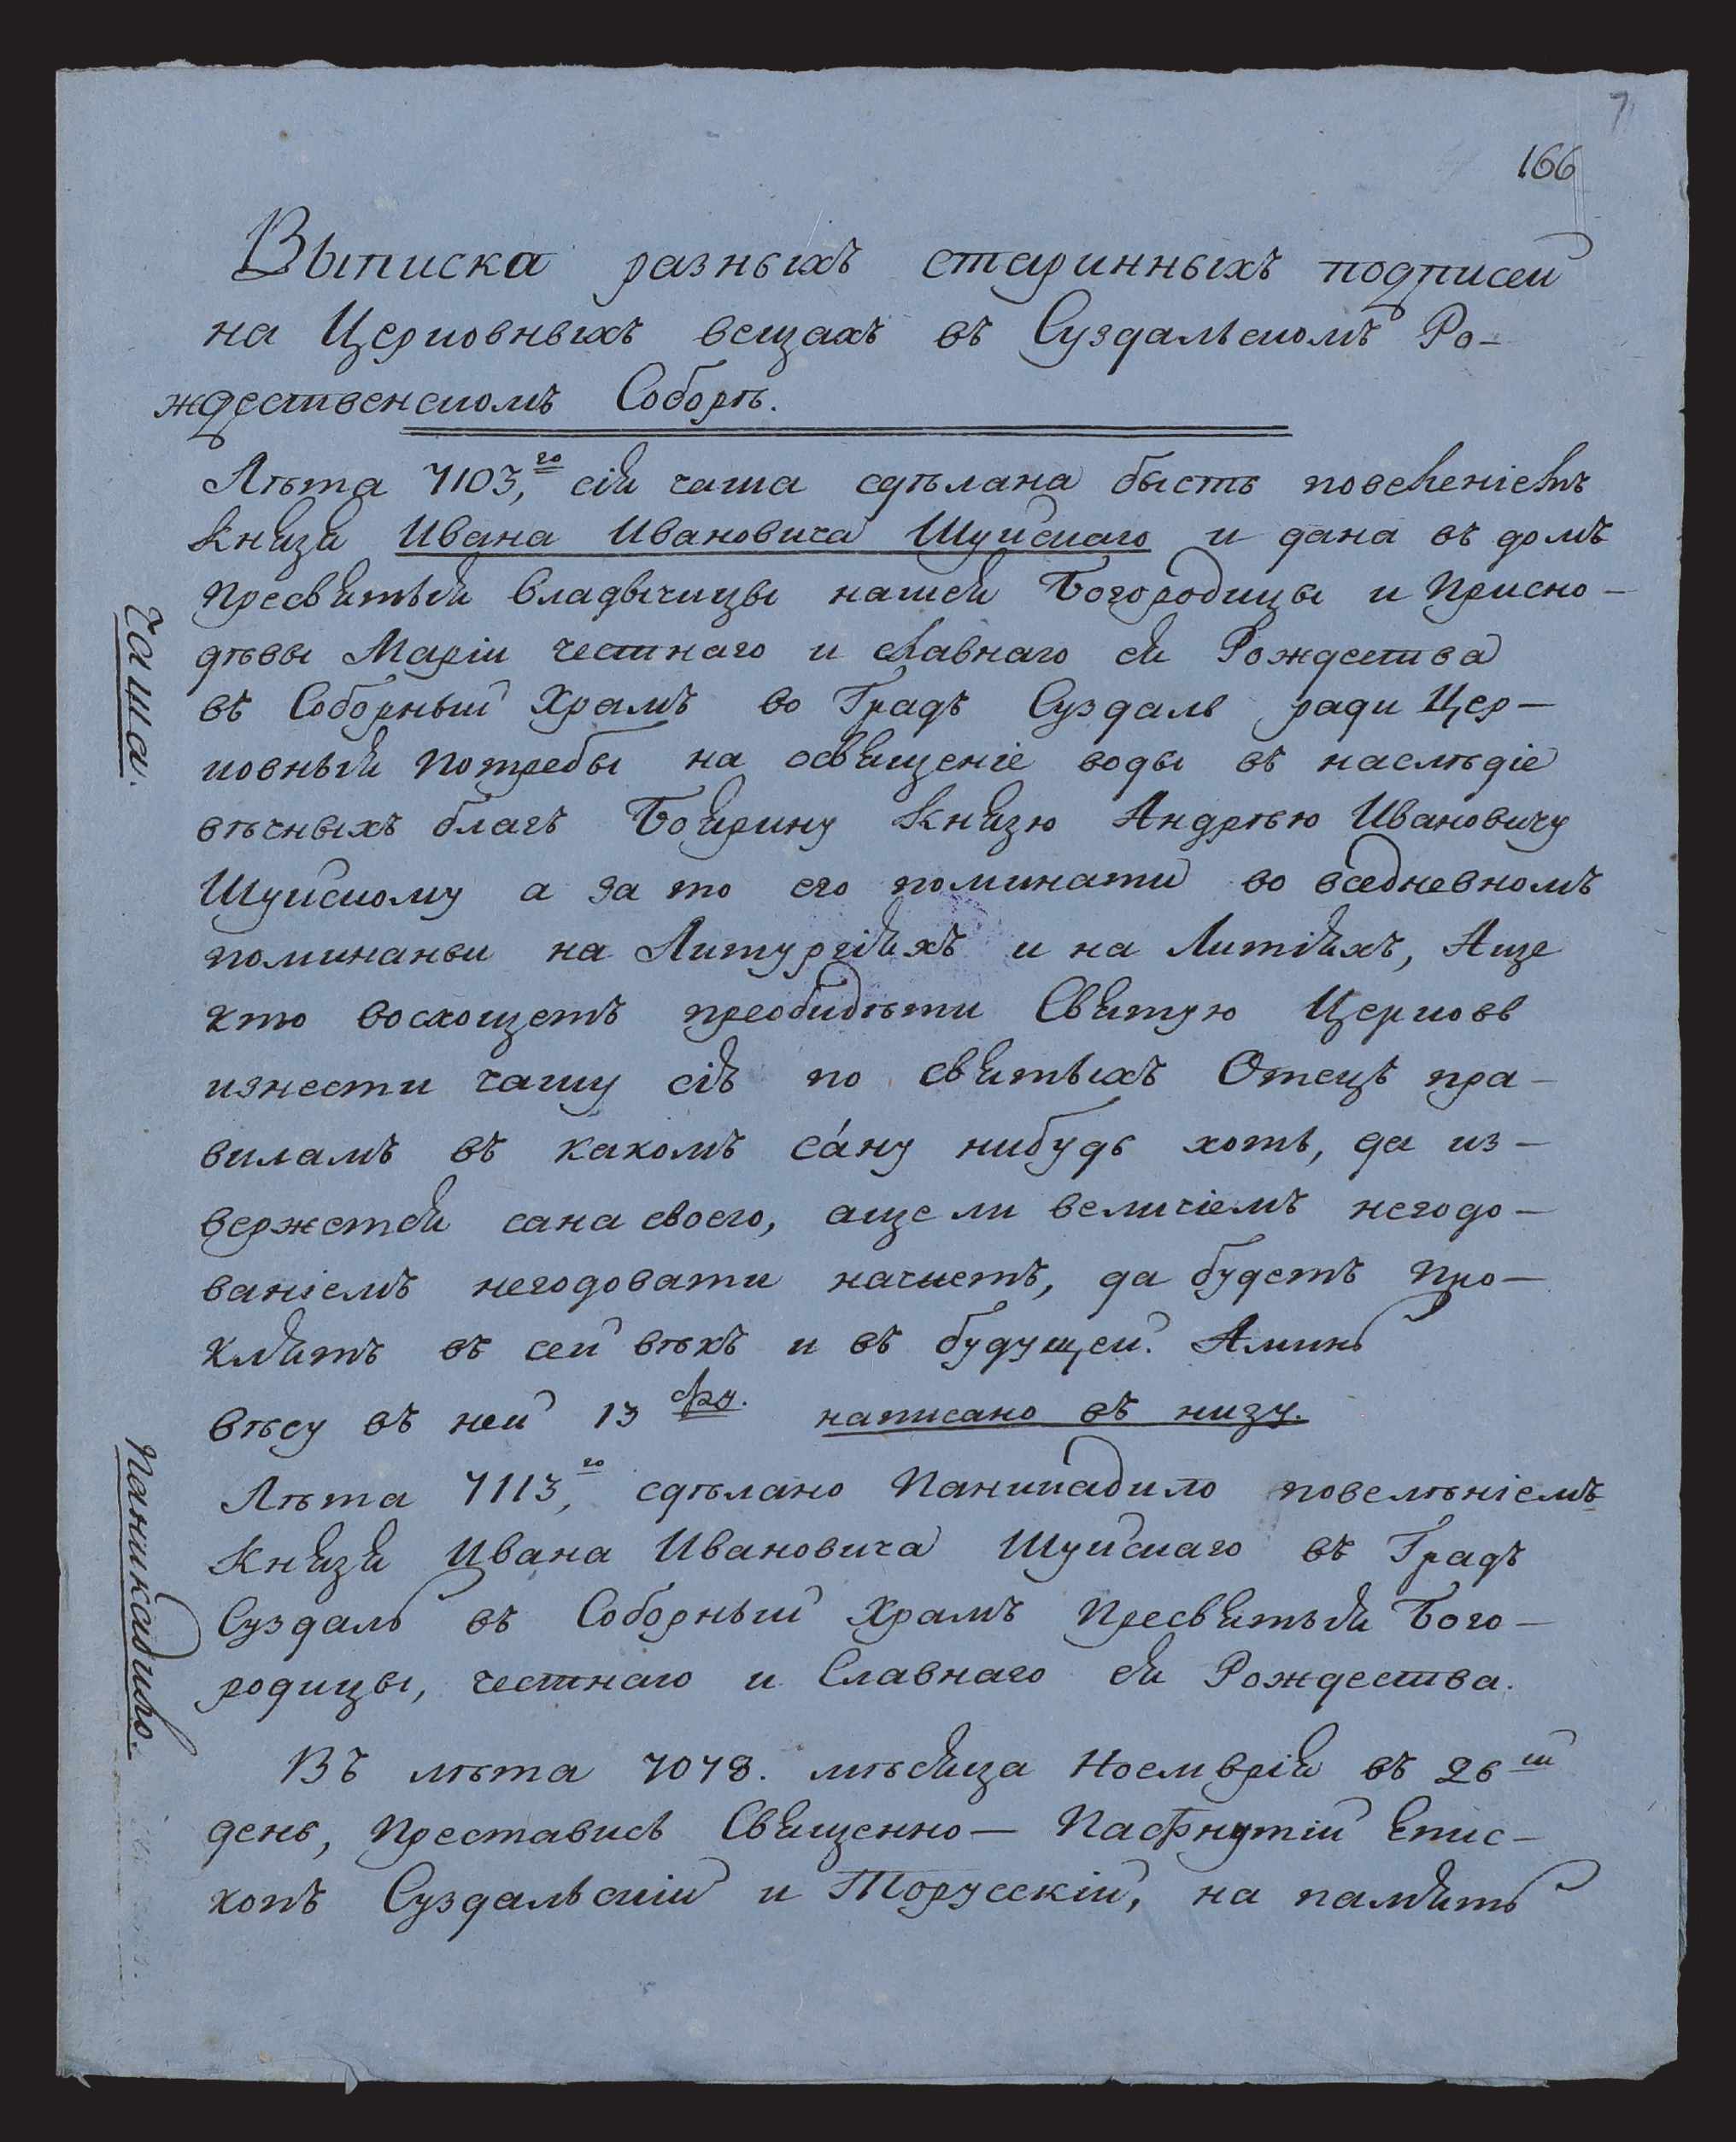 7
166
Выписка разныхъ старинныхъ подписей
на Церковныхъ вещахъ въ Суздальскомъ Ро-
ждественскомъ Соборѣ.
Лѣта 7103,го сія чаша сдѣлана бысть повеленіемъ
Князя Ивана Ивановича Шуйскаго и дана въ домъ
Пресвятыя Владычицы нашея Богородицы и Присно-
дѣвы Маріи честнаго и славнаго ея Рождества
въ Соборный Храмъ во Градъ Суздаль ради Цер-
ковныя потребы на освященіе воды въ наслѣдіе
вѣчныхъ благъ Боярину Князю Андрѣю Ивановичу
Шуйскому а за то его поминати во вседневномъ
поминаньи на Литургіяхъ и на Литіяхъ, Аще
кто восхощетъ преобидѣти Святую Церковь
изнести чашу сію по святыхъ Отецъ пра-
виламъ въ какомъ са́ну нибудь хоть, да из-
вержется сана своего, аще ли величіемъ негодо-
ваніемъ негодовати начнетъ, да будетъ про-
клятъ въ сей вѣкъ и въ будущей. Аминь
вѣсу въ ней 13 фу. написано въ низу.
Лѣта 7113,го сдѣлано Паникадило повелѣніемъ
Князя Ивана Ивановича Шуйскаго въ Градъ
Суздаль въ Соборный Храмъ Пресвятыя Бого-
родицы, честнаго и Славнаго ея Рождества.
Въ лѣта 7078. мѣсяца Ноемврія въ 26й
день, Преставись Священно- Пафнутій Епис-
копъ Суздальскій и Торусскій, на память
Чаша.
Паникадило.